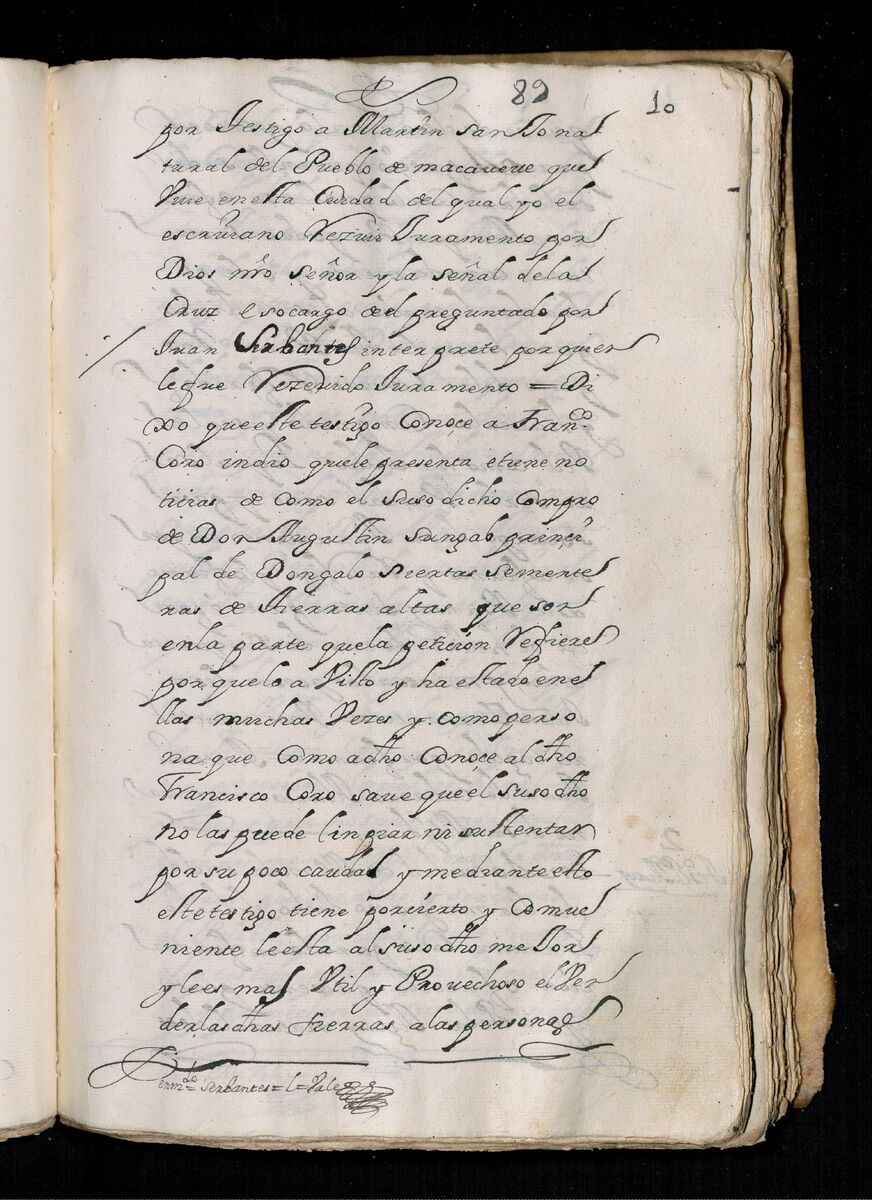 89
10
por Testigo a Martin san Jo na
tural del Pueblo de macaveve que
Viue en esta Ciudad del qual yo el
escriuano Reziui Juramento por
Dios nro señor y la señal de la
Cruz e so cargo del preguntado por
Juan Serbantes interprete por quien
le fue Rezeuido Juramento = Di
xo que este testigo Conoçe a Franco
Coro indio que le presenta e tiene no
ticias de como el suso dicho Compro
de Don Augustin sungab princi
pal de Dongalo siertas semente
ras de tierras altas que son
en la parte que la petiçion Refiere
por que lo a Visto y ha estado en e
llas muchas Vezes y como perso
na que como a dho Conoçe al dho
Francisco Coro saue que el suso dho
no las puede linpiar ni sustentar
por su poco caudal y mediante esto
este testigo tiene por cierto y Comue
niente le esta al suso dho mejor
y le es mas Vtil y Prouechoso el Ven
der las dhas tierras a las personas
enmdo = serbantes = l = Vale